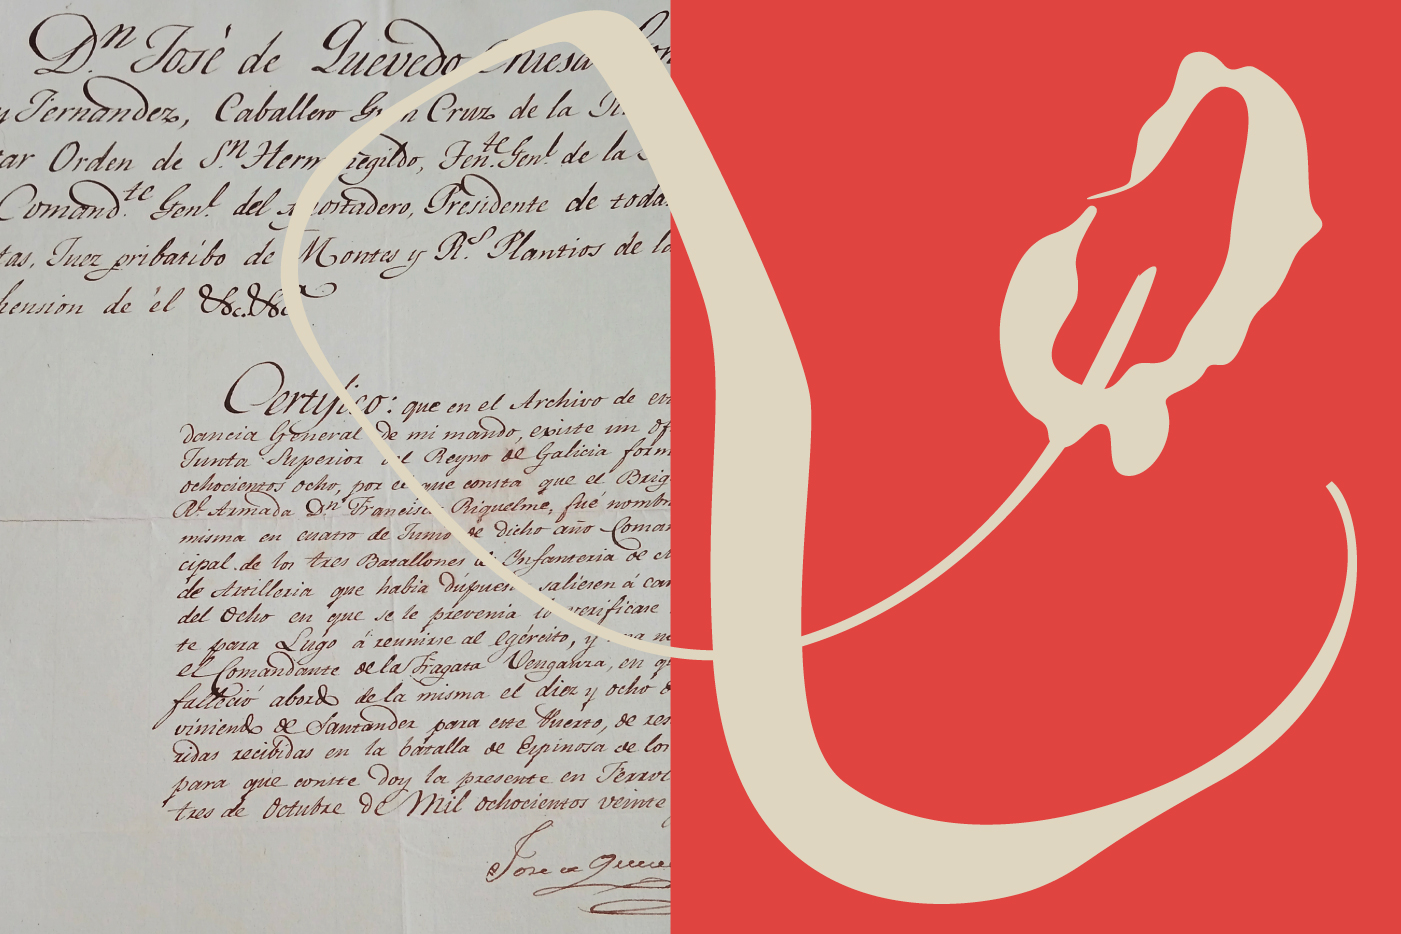 Dn. José de Quevedo Chiesa
y Fernandez, Caballero Gran Cruz de la
tar Orden de Sn. Hermenegildo, Tente. Genl. de la
Comandte. Genl. del Apostadero, Presidente de toda
tas, Juez pribatibo de Montes y Rs. Plantios de la
hension de él &c. &ca.
Certifico: que en el Archivo de
dancia General de mi mando, existe un of
Junta Superior del Reyno de Galicia form
ochocientos ocho, por el que consta que el Brig
Rl. Armada Dn. Francisco Riquelme, fué nomb
misma en cuatro de Junio de dicho año Coman
cipal de los tres Batallones de Infanteria de
de Artilleria que habia dispuesto saliesen á
del Ocho en que se le prevenia lo verificase
te para Lugo á reunirse al Egército, y
el Comandante de la Fragata Venganza, en
falleció abordo de la misma el diez y ocho
viniendo de Santander para este Puerto, de
ridas recibidas en la batalla de Espinosa de los
para que conste doy la presente en Ferrol
tres de Octubre de Mil ochocientos veinte
Jose de Queve